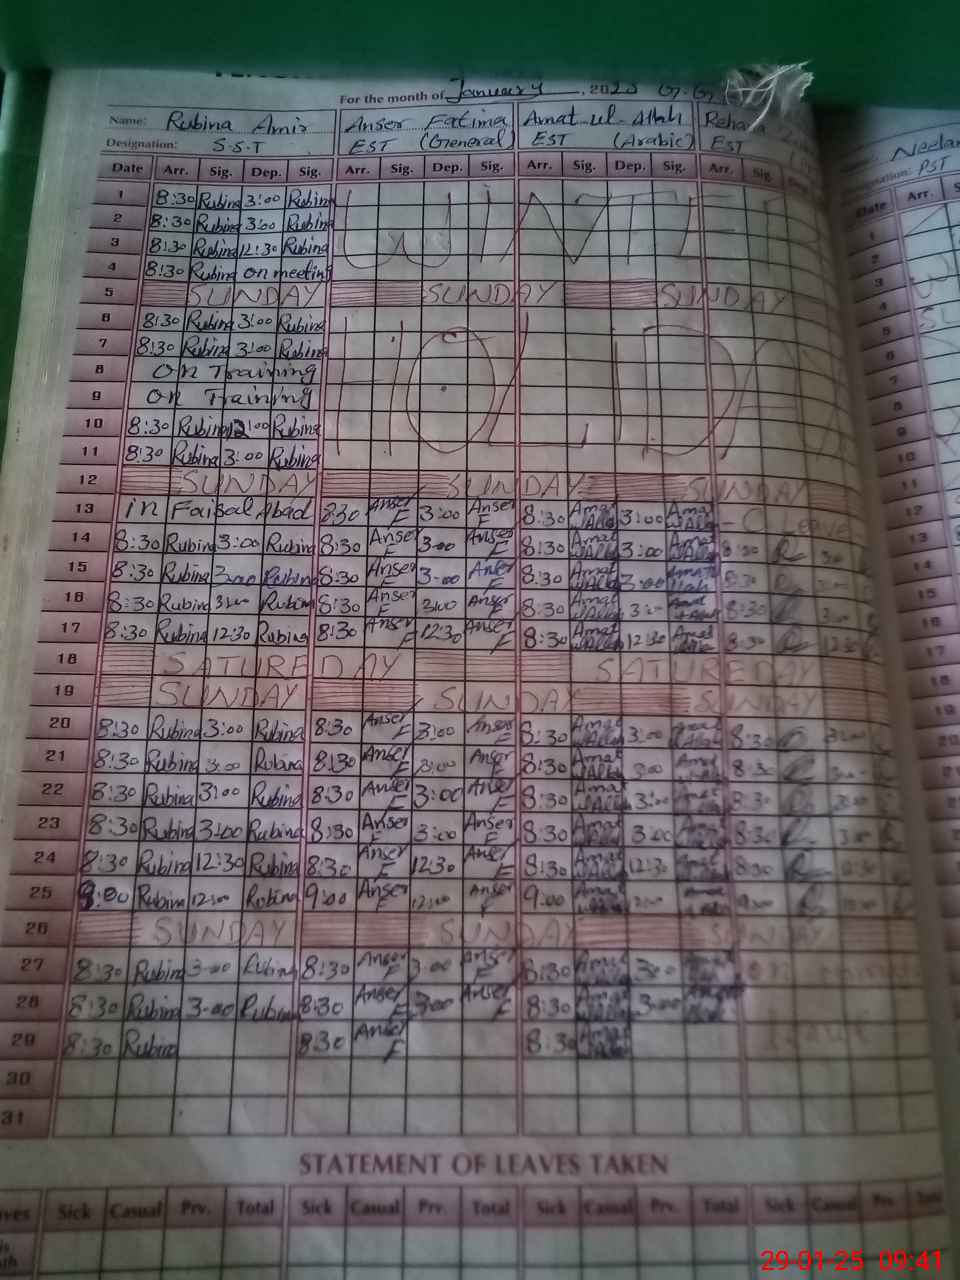 For the month of January, 2025
Name: Rubina Amir Anser Fatima Amat-ul-Allah Rehana
Designation: S.S.T EST (General) EST (Arabic) EST
Date Arr. Sig. Dep. Sig. Arr. Sig. Dep. Sig. Arr. Sig. Dep. Sig. Arr. Sig.
1 8:30 Rubina 3:00 Rubina WINTER
2 8:30 Rubina 3:00 Rubina
3 8:30 Rubina 12:30 Rubina
4 8:30 Rubina on meeting
5 SUNDAY SUNDAY SUNDAY
6 8:30 Rubina 3:00 Rubina HOLIDAY
7 8:30 Rubina 3:00 Rubina
8 on Training
9 on Training
10 8:30 Rubina 12:00 Rubina
11 8:30 Rubina 3:00 Rubina
12 SUNDAY SUNDAY SUNDAY
13 in Faisal Abad 8:30 Anser F 3:00 Anser F 8:30 Amat ul Allah 3:00 Amat ul Allah C. Leave
14 8:30 Rubina 3:00 Rubina 8:30 Anser F 3:00 Anser F 8:30 Amat ul Allah 3:00 Amat ul Allah 8:30 3:00
15 8:30 Rubina 3:00 Rubina 8:30 Anser F 3:00 Anser F 8:30 Amat ul Allah 3:00 Amat ul Allah 8:30
16 8:30 Rubina 3:00 Rubina 8:30 Anser F 3:00 Anser F 8:30 Amat ul Allah 3:00 Amat ul Allah 8:30 3:00
17 8:30 Rubina 12:30 Rubina 8:30 Anser F 12:30 Anser F 8:30 Amat ul Allah 12:30 Amat ul Allah 8:30 12:30
18 SATUREDAY SATUREDAY
19 SUNDAY SUNDAY SUNDAY
20 8:30 Rubina 3:00 Rubina 8:30 Anser F 3:00 Anser F 8:30 Amat ul Allah 3:00 Amat ul Allah 8:30 3:00
21 8:30 Rubina 3:00 Rubina 8:30 Anser F 3:00 Anser F 8:30 Amat ul Allah 3:00 Amat ul Allah 8:30 3:00
22 8:30 Rubina 3:00 Rubina 8:30 Anser F 3:00 Anser F 8:30 Amat ul Allah 3:00 Amat ul Allah 8:30 3:00
23 8:30 Rubina 3:00 Rubina 8:30 Anser F 3:00 Anser F 8:30 Amat ul Allah 3:00 Amat ul Allah 8:30 3:00
24 8:30 Rubina 12:30 Rubina 8:30 Anser F 12:30 Anser F 8:30 Amat ul Allah 12:30 Amat ul Allah 8:30 12:30
25 9:00 Rubina 12:00 Rubina 9:00 Anser F 12:00 Anser F 9:00 Amat ul Allah 12:00 Amat ul Allah 9:00
26 SUNDAY SUNDAY SUNDAY
27 8:30 Rubina 3:00 Rubina 8:30 Anser F 3:00 Anser F 8:30 Amat ul Allah 3:00 Amat ul Allah
28 8:30 Rubina 3:00 Rubina 8:30 Anser F 3:00 Anser F 8:30 Amat ul Allah 3:00
29 8:30 Rubina 8:30 Anser F 8:30 Amat ul Allah
30
31
STATEMENT OF LEAVES TAKEN
Sick Casual Prv. Total Sick Casual Prv. Total Sick Casual Prv. Total Sick Casual Prv.
29-01-25 09:41